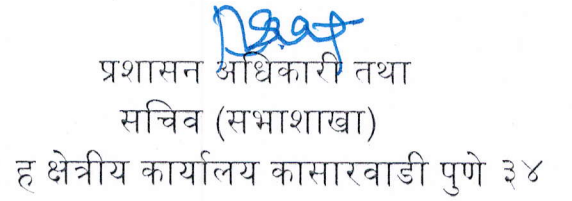 प्रशासन अधिकारी तथा
सचिव (सभाशाखा)
ह क्षेत्रीय कार्यालय कासारवाडी पुणे ३४